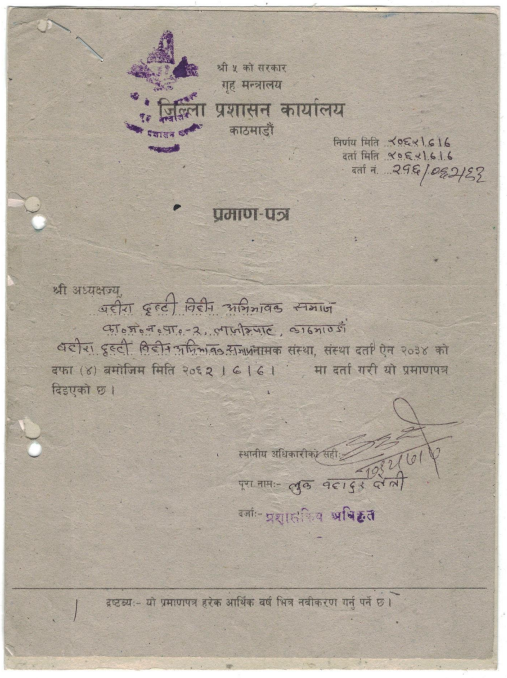 श्री ५ को सरकार
गृह मन्त्रालय
जिल्ला प्रशासन कार्यालय
काठमाडौं
निर्णय मिति २०६२।६।६
दर्ता मिति २०६२।६।६
दर्ता नं. २१६/०६२/६३
प्रमाण-पत्र
श्री अध्यक्षज्यू,
बहीरा दृष्टी विहीन अभिभावक समाज
का.म.न.पा.-२, लाजिम्पाट, काठमाण्डौ
बहीरा दृष्टी विहीन अभिभावक समाज नामक संस्था, संस्था दर्ता ऐन २०३४ को
दफा (४) बमोजिम मिति २०६२।६।६। मा दर्ता गरी यो प्रमाणपत्र
दिइएको छ।
स्थानीय अधिकारीको सही:-
पुरा नाम:- बहादुर क्षेत्री
दर्जा:- प्रशासकिय अधिकृत
द्रष्टव्य:- यो प्रमाणपत्र हरेक आर्थिक वर्ष भित्र नवीकरण गर्नु पर्ने छ।